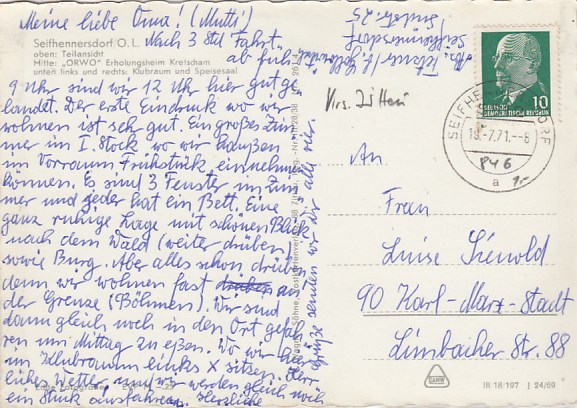 Meine liebe Oma! (Mutti)
Seifhennersdorf/O.L.
oben: Teilansicht
Mitte: „ORWO" Erholungsheim Kretscham
unten links und rechts: Klubraum und Speisesaal
Nach 3 Std Fahrt.
ab früh
9 Uhr sind wir 12 Uhr hier gut ge-
landet. Der erste Eindruck wo wir
wohnen ist sehr gut. Ein großes Zim
mer im I. Stock wo wir draußen
im Vorraum Frühstück einnehmen
können. Es sind 3 Fenster im Zim
mer und jeder hat ein Bett. Eine
ganz ruhige Lage mit schönen Blick
nach dem Wald (weiter drüben)
sowie Burg. Aber alles schon drüben
denn wir wohnen fast an
der Grenze (Böhmen). Wir sind
dann gleich noch in den Ort gefah
ren um Mittag zu eßen. Wo wir hier
im Klubraum links X sitzen. Herr
liches Wetter, und wir werden gleich noch
ein Stück ausfahren. Herzliche
Grüße senden wir dir alle
Seifhennersdorf
Krs. Zittau
DEUTSCHE
DEMOKRATISCHE REPUBLIK
10
SEIFHENNERSDORF
19.-7.71.--8
846
a
1.-
An
Frau
Luise Lienold
90 Karl-Marx-Stadt
Limbacher Str. 88
III 18 197 | 24/69